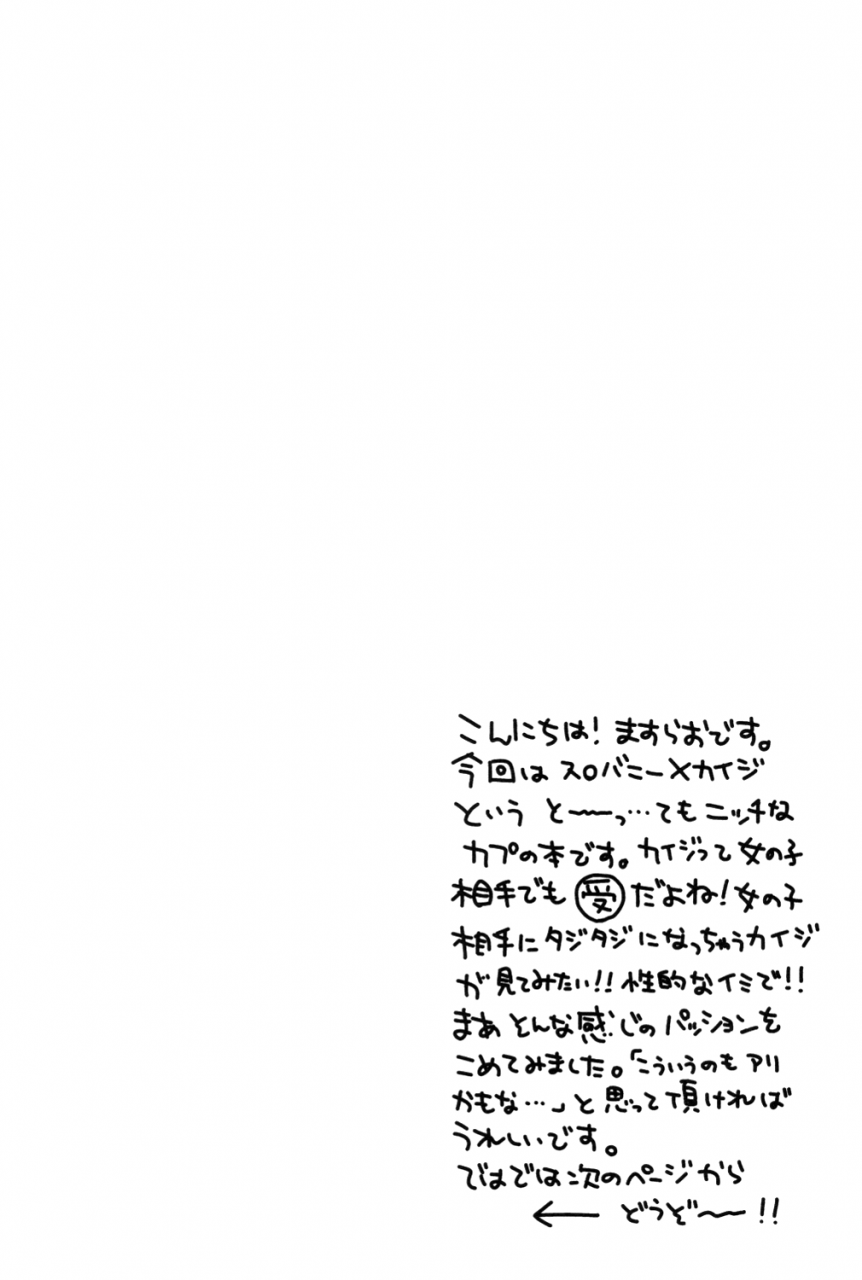 こんにちは!ますらおです。
今回はスロバニー×カイジ
というと〜〜っ…てもニッチな
カプの本です。カイジって女の子
相手でも受だよね!女の子
相手にタジタジになっちゃうカイジ
が見てみたい!!性的なイミで!!
まあそんな感じのパッションを
こめてみました。「こういうのもアリ
かもな…」と思って頂ければ
うれしいです。
ではでは次のページから
← どうぞ〜〜!!